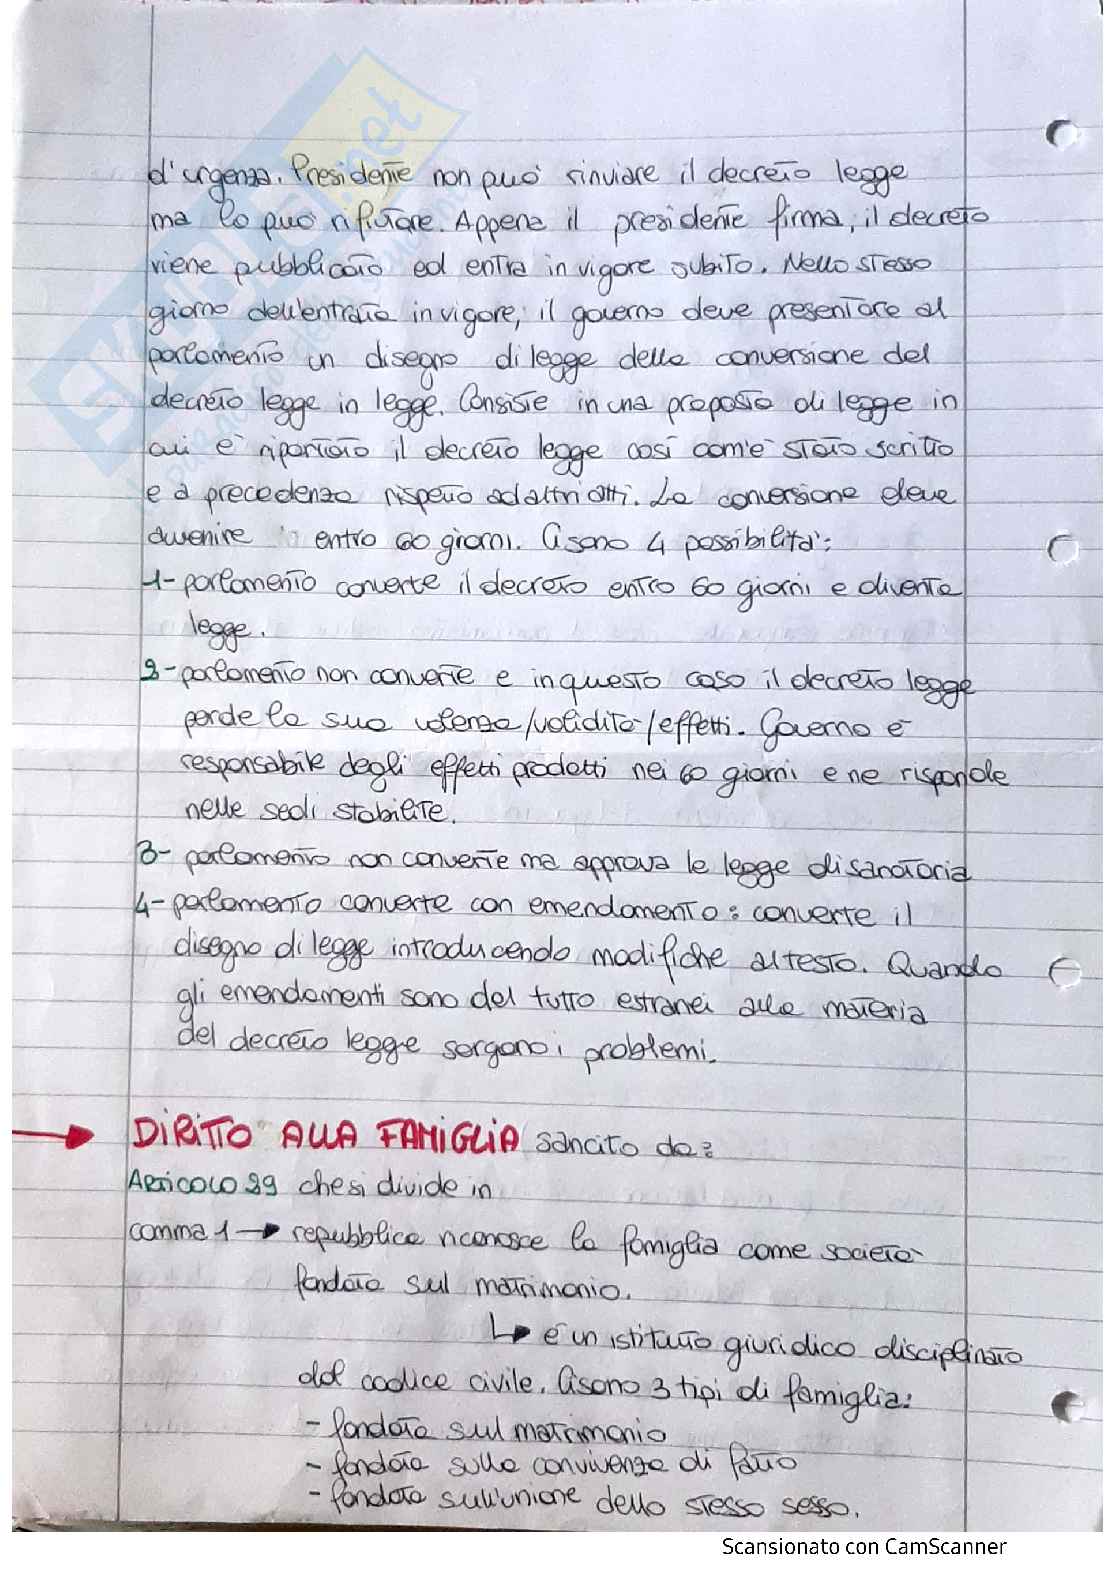 d'urgenza. Presidente non può rinviare il decreto legge
ma lo può rifiutare. Appena il presidente firma, il decreto
viene pubblicato ed entra in vigore subito. Nello stesso
giorno dell'entrata in vigore, il governo deve presentare al
parlamento un disegno di legge della conversione del
decreto legge in legge. Consiste in una proposta di legge in
cui è riportato il decreto legge così com'è stato scritto
e à precedenza rispetto ad altri atti. La conversione deve
avvenire entro 60 giorni. Ci sono 4 possibilità:
1- parlamento converte il decreto entro 60 giorni e diventa
legge.
2- parlamento non converte e in questo caso il decreto legge
perde la sua valenza/validità/effetti. Governo è
responsabile degli effetti prodotti nei 60 giorni e ne risponde
nelle sedi stabilite.
3- parlamento non converte ma approva la legge di sanatoria
4- parlamento converte con emendamento: converte il
disegno di legge introducendo modifiche al testo. Quando
gli emendamenti sono del tutto estranei alla materia
del decreto legge sorgono i problemi.
→ DIRITTO ALLA FAMIGLIA sancito da:
ARTICOLO 29 che si divide in
comma 1 → repubblica riconosce la famiglia come società
fondata sul matrimonio.
↳ è un istituto giuridico disciplinato
dal codice civile. Ci sono 3 tipi di famiglia:
- fondata sul matrimonio
- fondata sulla convivenza di fatto
- fondata sull'unione dello stesso sesso.
Scansionato con CamScanner